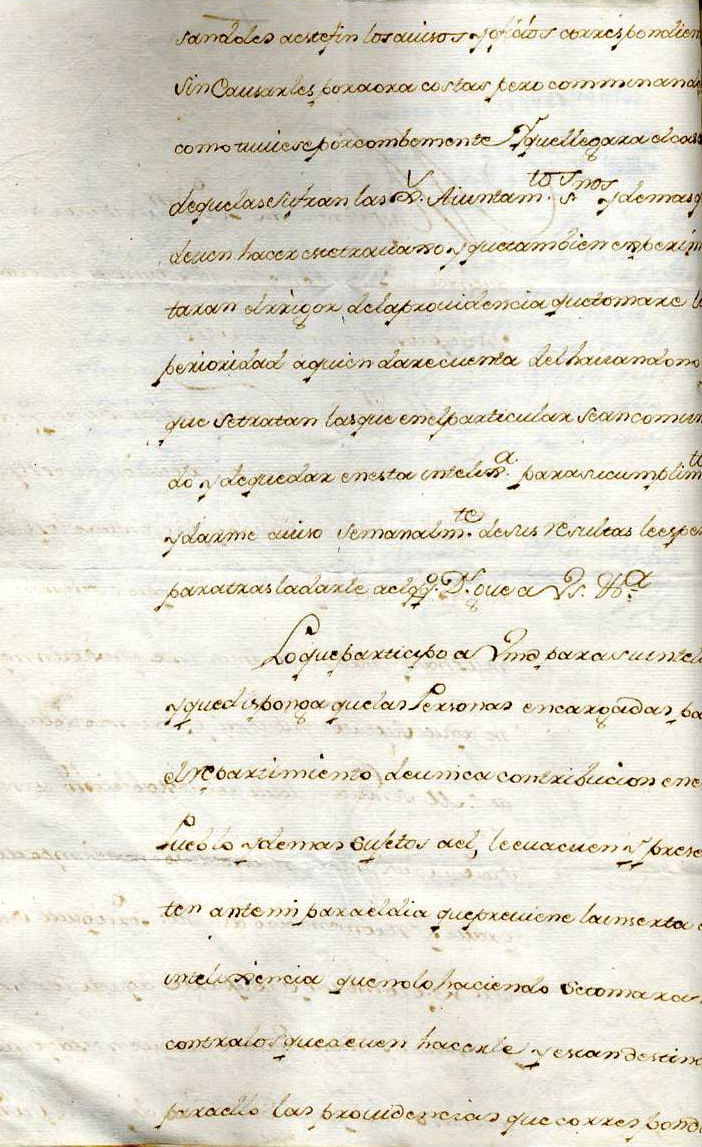 sandoles aestefin los avisos y ofizios correspondien
sin Causarles por aora costas pero comminando
como tuviese por combeniente Y que llegara el caso
de que las sufran las Aiuntam.tos s.rnos y demas q
deven hacer este travajo y que tambien experim
taran el rrigor dela providencia que tomare l
perioridad aquien dare cuenta del haviendono
que se tratan las que enel particular sean comun
do y de quedar enesta intelix.a para su cumplim.to
y darme aviso semanalm.te de sus resultas le esper
para trasladarle aello. D.s gue a Vs. m.s a.s
Lo que participo a Vmd para su intelix
y que disponga que las Personas encargadas pa
el repartimiento de unica contribucion en e
Pueblo y demas sujetos ael, le evacuen y prese
ten ante mi para el dia que previene la inserta
intelixencia que no lo haciendo se tomaran
contra los que deven hacerle y estan destina
para ello las providencias que corresponde